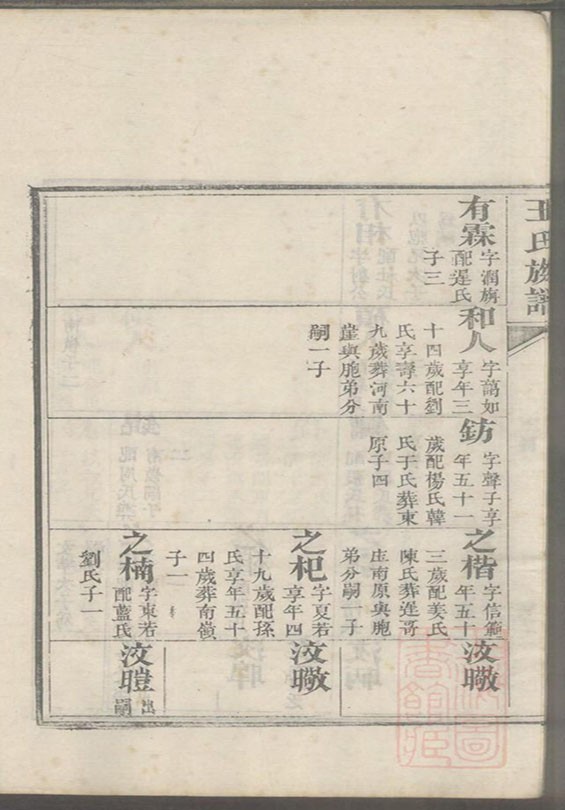 王氏族譜
有霖
字潤旃
配遲氏
子三
和人
字藹如
享年三
十四歲配劉
氏享壽六十
九歲葬河南
崖與胞弟分
嗣一子
鈁
字聲子享
年五十一
歲配楊氏韓
氏于氏葬東
原子四
之楷
字信範
年五十
三歲配姜氏
陳氏葬遲哥
庄南原與胞
弟分嗣一子
之杞
字夏若
享年四
十九歲配孫
氏享年五十
四歲葬南嶺
子一
之楠
字東若
配藍氏
劉氏子一
汝暾
汝暾
汝暟
出
嗣